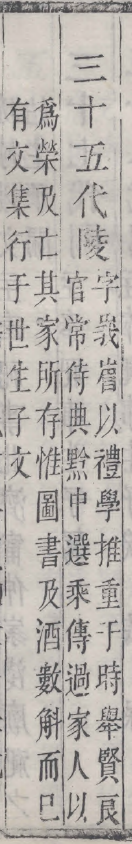 三十五代陵字峩嵳以禮學推重于時舉賢良
官常侍典黔中選乘傳過家人以
爲榮及亡其家所存惟圖書及酒數斛而已
有文集行于世生子文